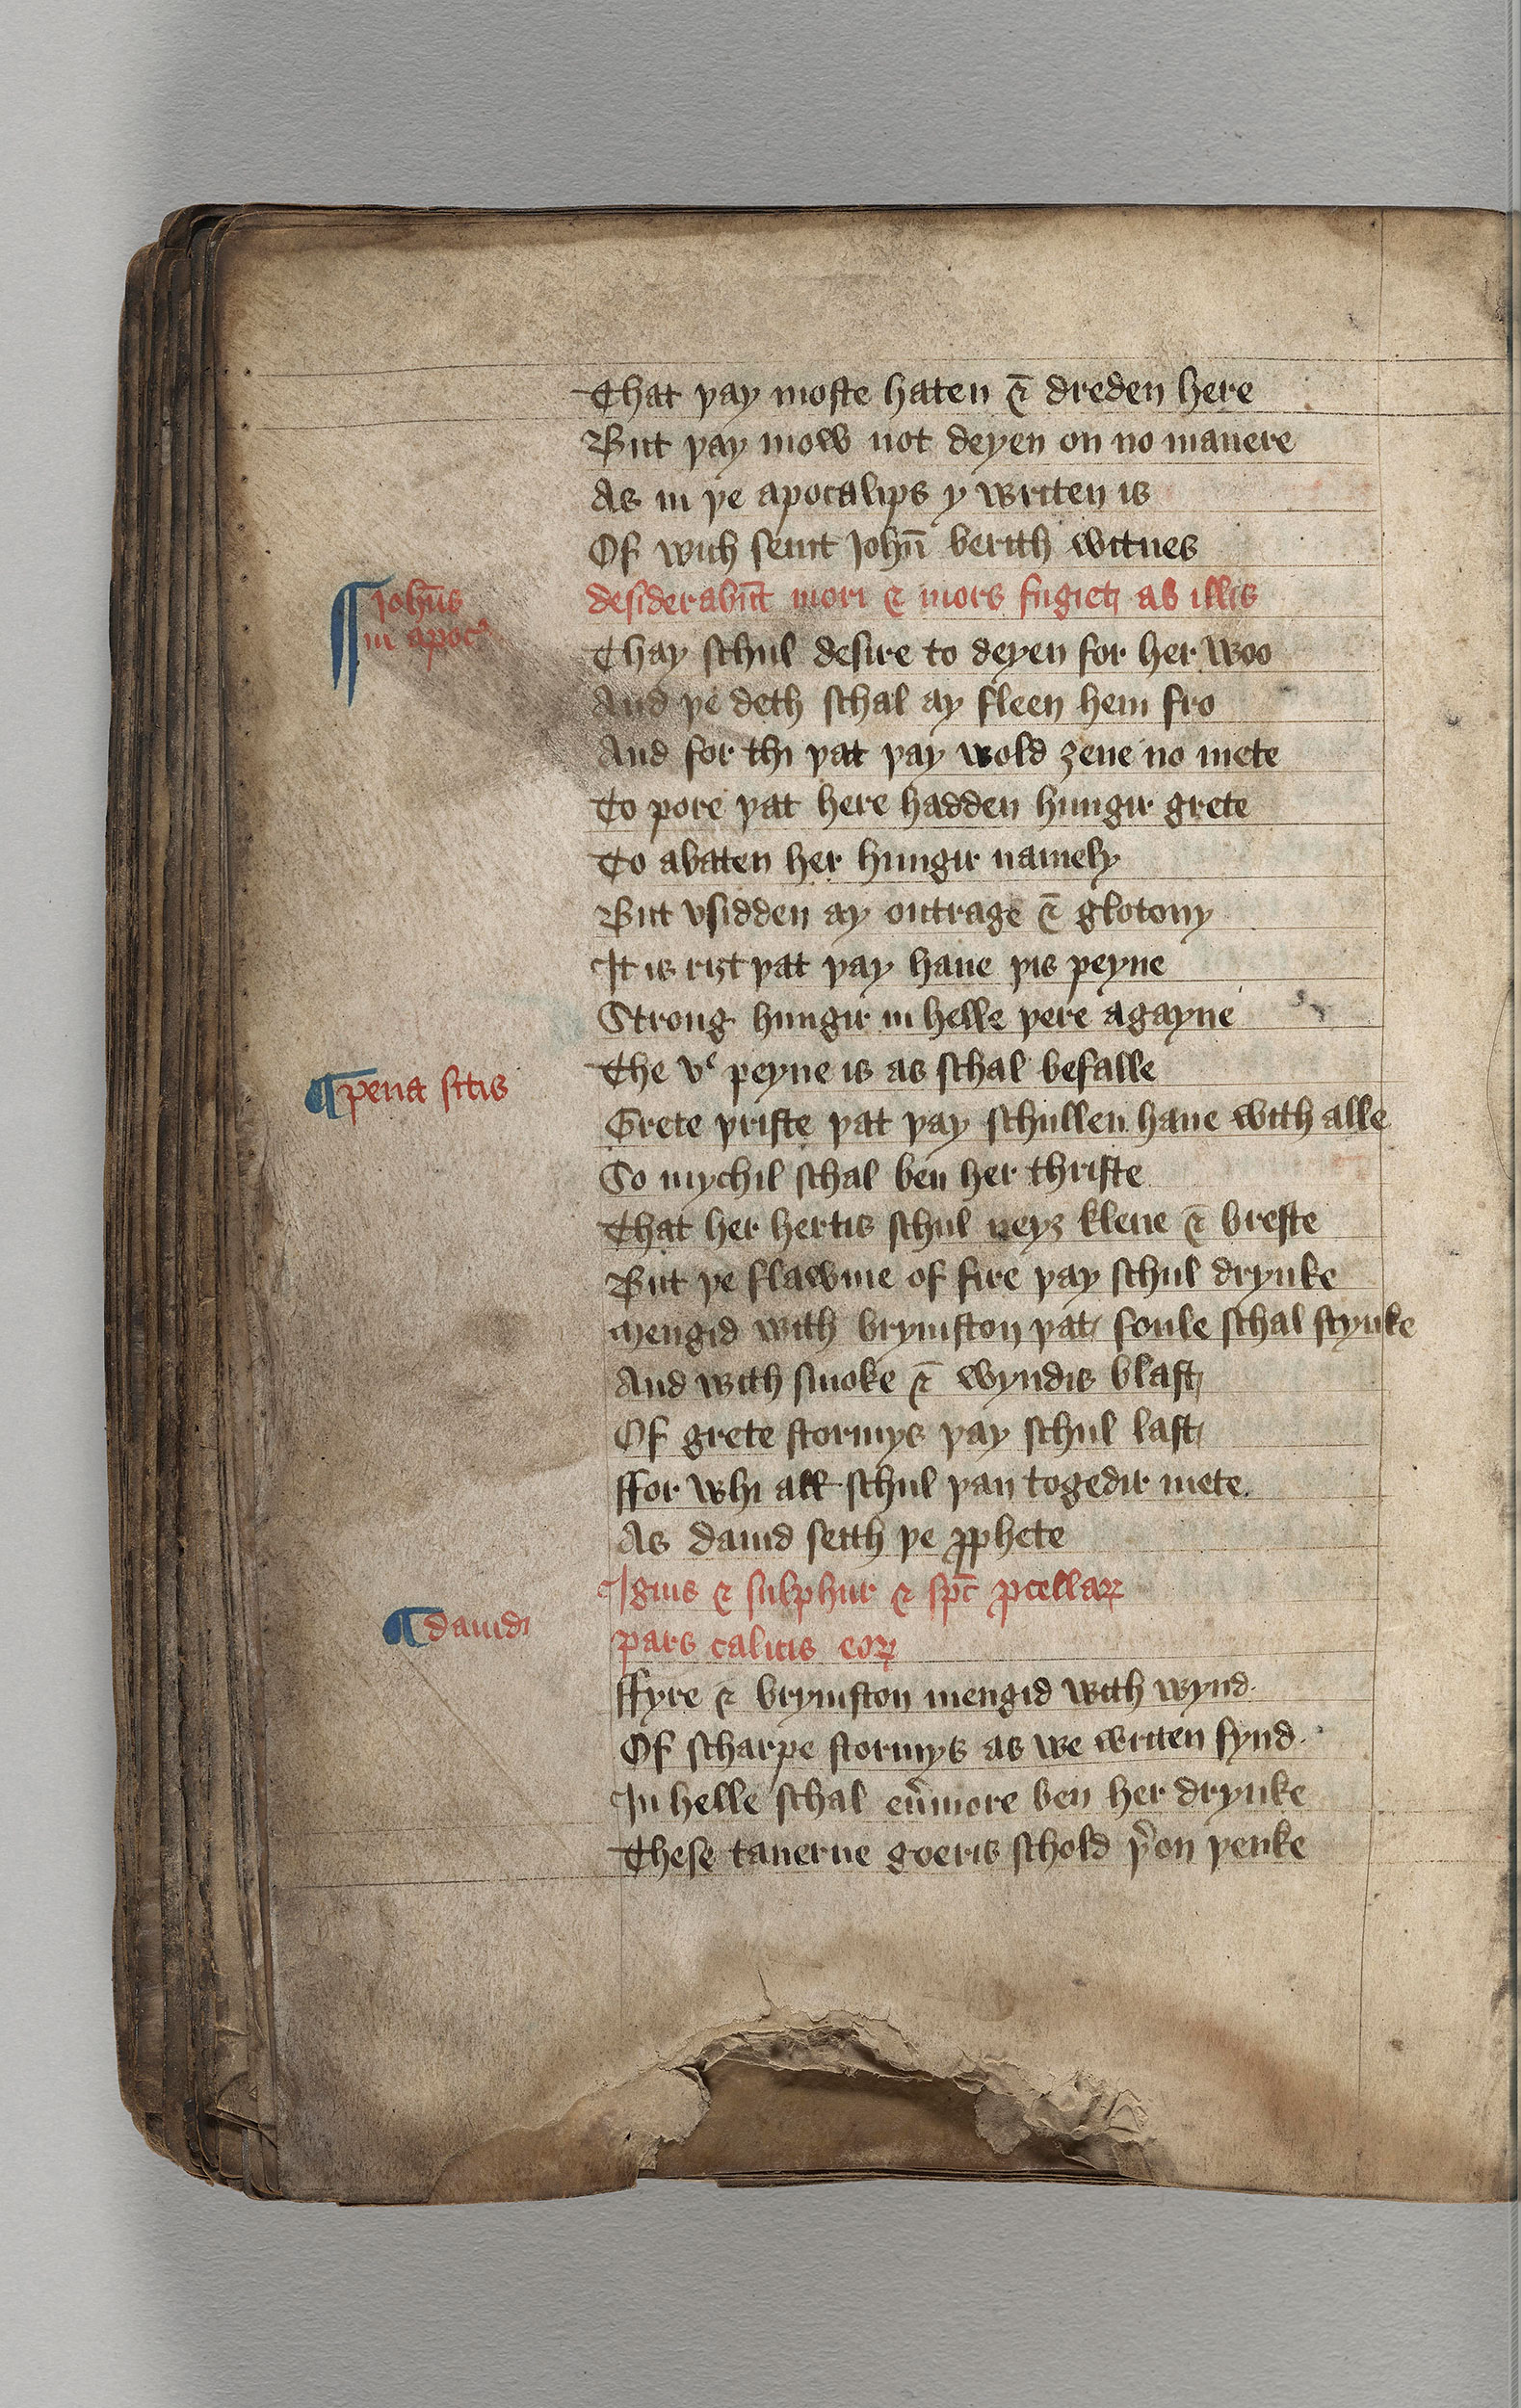 That þay moste haten & dreden here
But þay mow not deyen on no manere
As in þe apocalips y writen is
Of wich seint Johñ berith witnes
Joh̄es
in apocᵃ
desiderabūt mori & mors fugietꝭ ab illis
Thay schul desire to deyen for her woo
And þe deth schal ay fleen hem fro
And for thi þat þay wold ȝeue no mete
To pore þat here hadden hungir grete
To abaten her hungir namely
But vsidden ay outrage & glotony
It is riȝt þat þay haue þis peyne
Strong hungir in helle þere agayne
¶ pena sitis
The vᵉ peyne is as schal befalle
Grete þriste þat þay schullen haue with alle
So mychil schal ben her thriste
That her hertis schul neyȝ kleue & breste
But þe flawme of fire þay schul drynke
Mengid with brymston þat foule schal stynke
And with smoke & wyndis blast
Of grete stormys þay schul last
ffor whi all schul þan togedir mete.
As dauid seith þe ꝓphete
Ignis & sulphur & sp̄c ꝓcellaꝝ
¶ dauid
pars calicis eoꝝ
ffyre & brymston mengid with wynd.
Of scharpe stormys as we writen fynd.
In helle schal eu̾more ben her drynke
These tauerne goeris schold þ̾on þenke